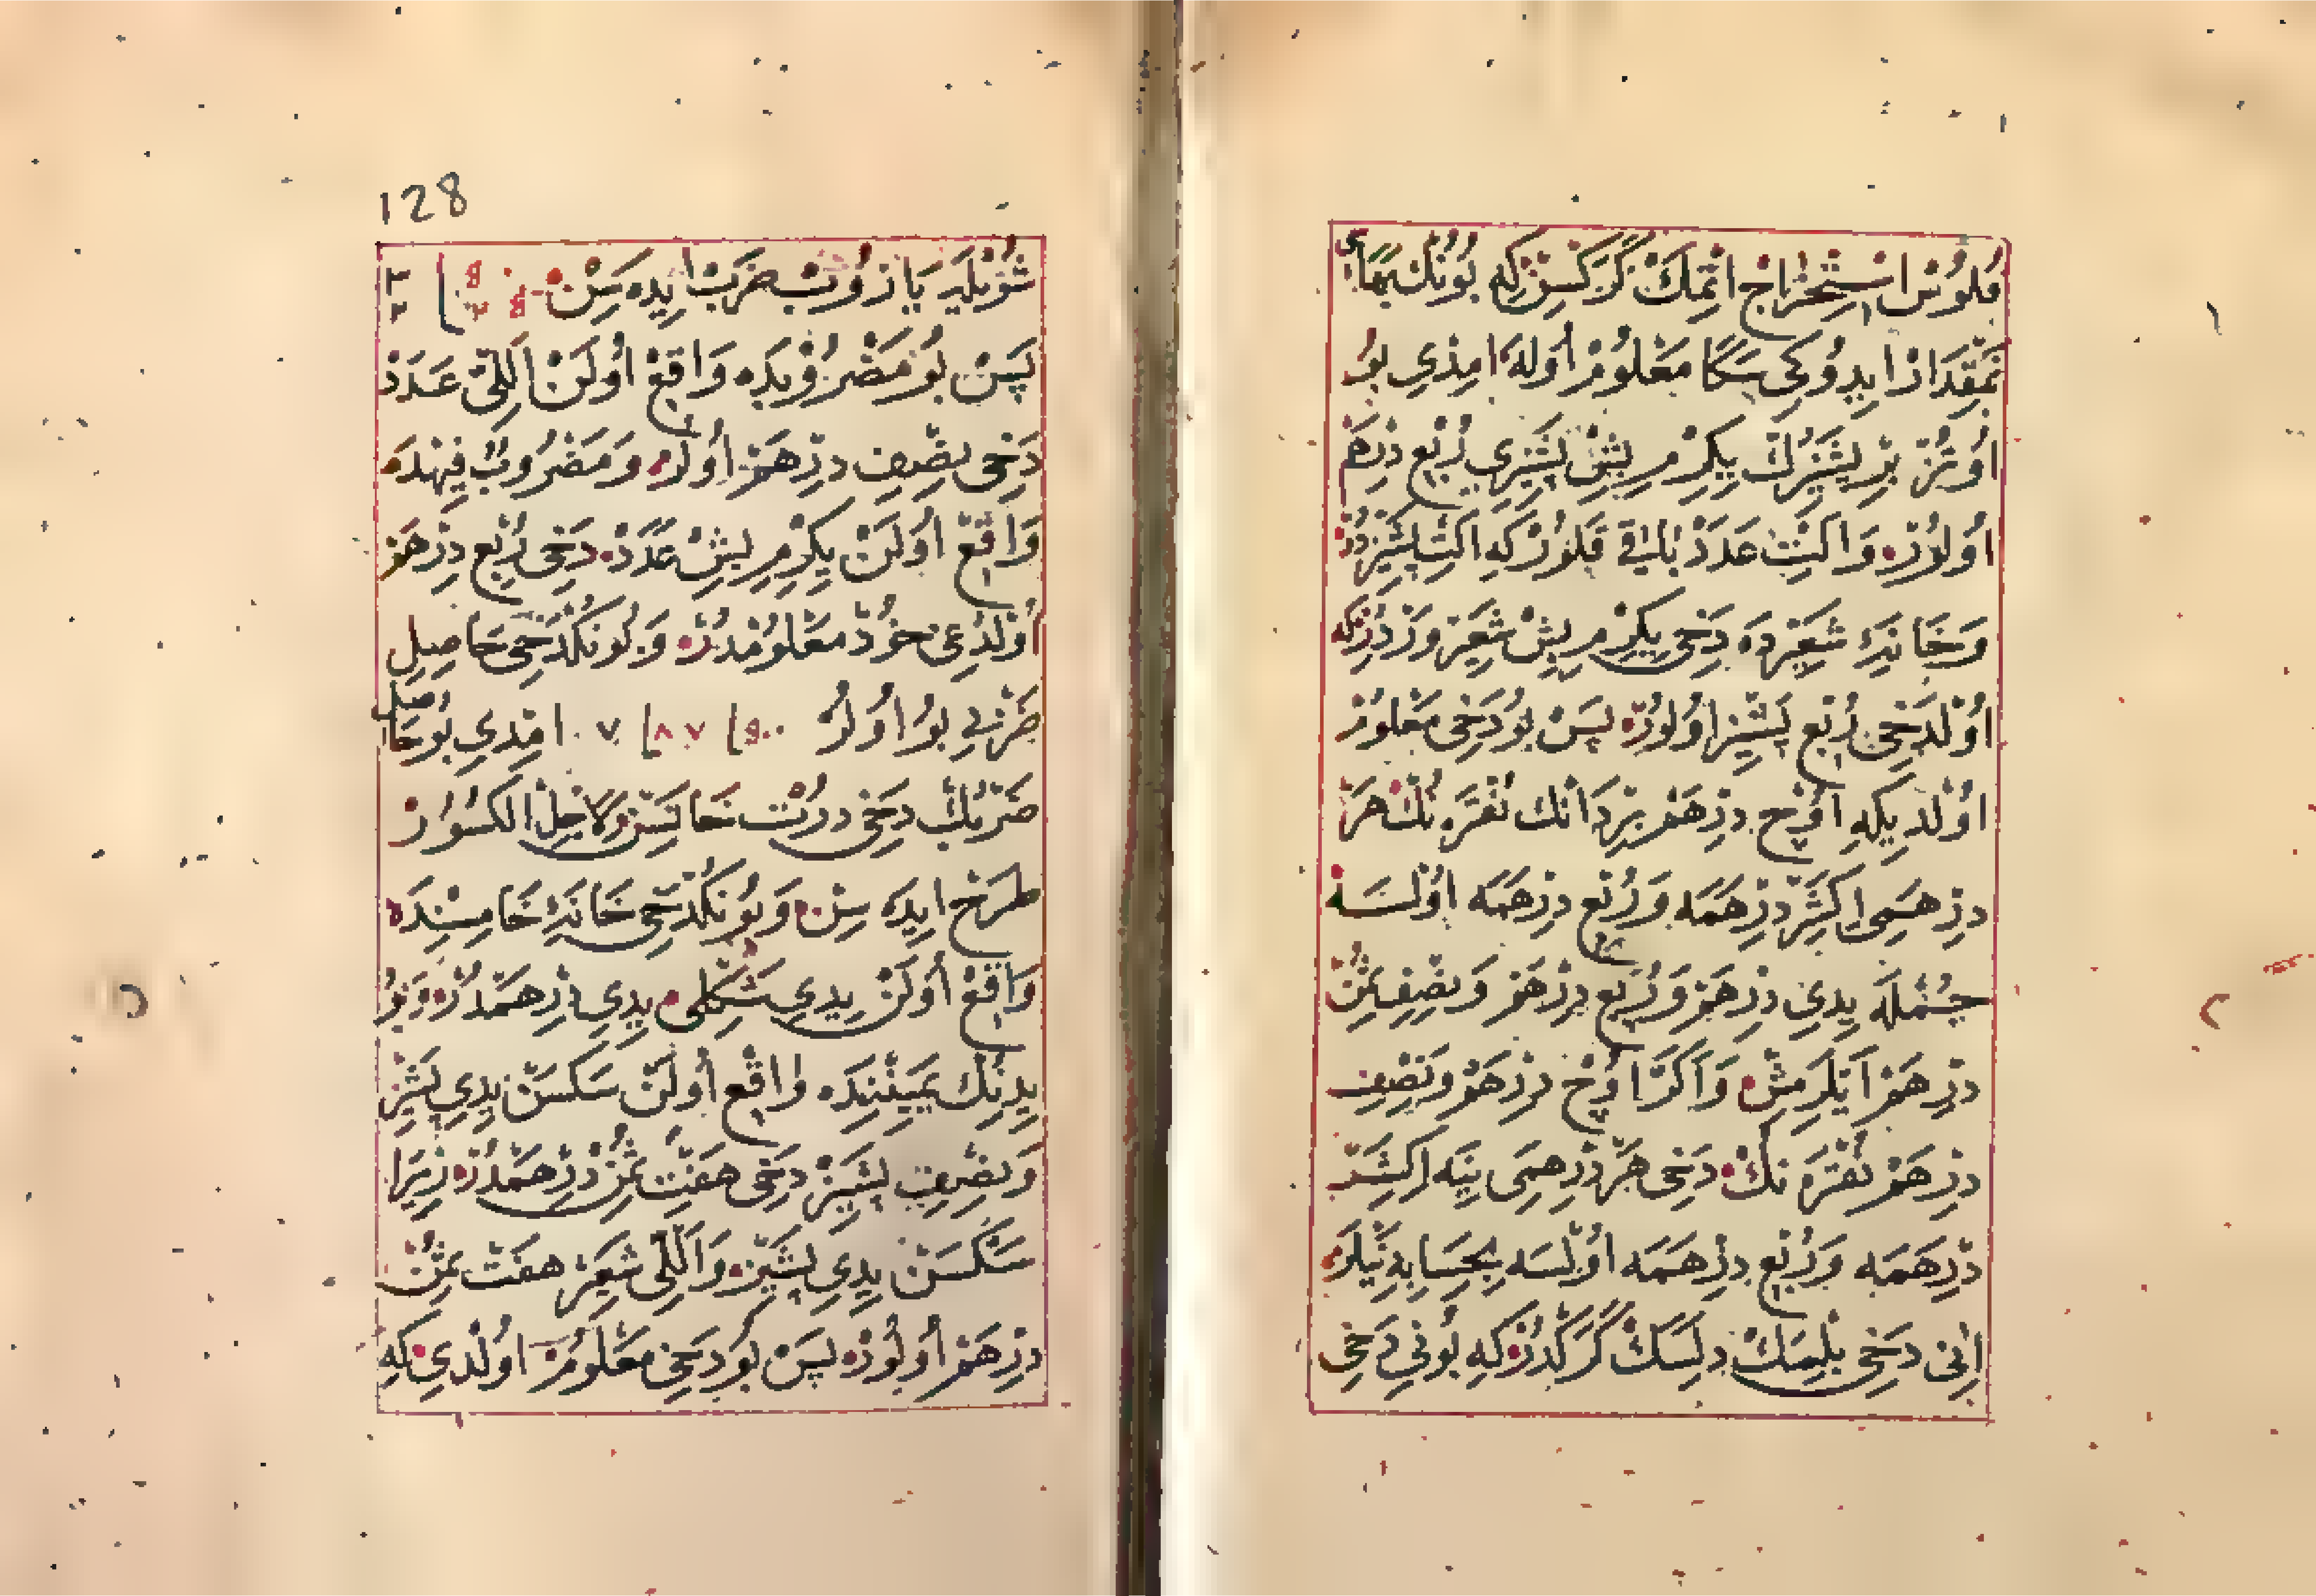 فُلُوسْ اسْتِخْرَاجْ اتْمَكْ كَرَكْسِنْ كِه بُونُكْ بَهَاسِي
نَمِقْدَارْ ايدُوكِي سَكَا مَعْلُومْ اُولَه امْدِي بُو
اُوتُزْ بِرْ پَشِيزُكْ يِكِرْمِ بِشْ پَشِيزِي رُبْعِ دِرْهَمْ
اُولُورْ وَ الْتِ عَدَدْ بَاقِي قَلُورْ كِه الْتِ پَشِيزْدُرْ
وَ خَانَهِٔ شَعِيرْدَه دَخِي يِكِرْمِ بِشْ شَعِيرْ وَرْدُرْكِه
اُولْدَخِي رُبْعِ پَشِيزْ اُولُورْ پَسْ بُو دَخِي مَعْلُومْ
اُولْدِيكِه اُوچْ دِرْهَمْ بِرْ دَانْكْ نُقْرَه نُكْ هَرْ
دِرْهَمِي اِكِشَرْ دِرْهَمَه وَ رُبْعِ دِرْهَمَه اُولْسَه
جُمْلَه يِدِي دِرْهَمْ وَ رُبْعِ دِرْهَمْ وَ نِصْفِ ثُمْنِ
دِرْهَمْ ايْلَرْمِشْ وَ اَكَرْ اُوچْ دِرْهَمْ وَ نِصْفِ
دِرْهَمْ نُقْرَه نُكْ دَخِي هَرْ دِرْهَمِي يِنَه اِكِشَرْ
دِرْهَمَه وَ رُبْعِ دِرْهَمَه اُولْسَه حِسَابِه نَيْلَرْ
اَنِي دَخِي بِلْمَكْ دِلَسَكْ كَرَكْدُرْ كِه بُونِي دَخِي
128
شُويْلَه يَازُوبْ ضَرْبْ ايدَه سِنْ
پَسْ بُو مَضْرُوبْدَه وَاقِعْ اُولَنْ اَللِّي عَدَدْ
دَخِي نِصْفِ دِرْهَمْ اُولُرْ وَ مَضْرُوبٌ فِيهْدَه
وَاقِعْ اُولَنْ يِكِرْمِ بِشْ عَدَدْ دَخِي رُبْعِ دِرْهَمْ
اُولْدُغِي خُودْ مَعْلُومْدُرْ وَ بُونُكْدَخِي حَاصِلِ
ضَرْبِي بُو اُولُرْ ٠ ٧ ٨٧ ٥٠٠ امْدِي بُو حَاصِلِ
ضَرْبُكْ دَخِي دُرْتْ خَانَسِنْ لَاجْلِ الْكُسُورْ
طَرْحْ ايدَه سِنْ وَ بُونُكْدَخِي خَانَهِٔ خَامِسْنَدَه
وَاقِعْ اُولَنْ يِدِي شَكْلِي يِدِي دِرْهَمْدُرْ وَ بُو
يِدِنُكْ يَمِينِنْدَه وَاقِعْ اُولَنْ سَكْسَنْ يِدِي پَشِيزْ
وَ نِصْفِ پَشِيزْ دَخِي هَفْتْ ثُمْنِ دِرْهَمْدُرْ زِيرَا
سَكْسَنْ يِدِي پَشِيزْ وَ اَللِّي شَعِيرْ هَفْتْ ثُمْنِ
دِرْهَمْ اُولُورْ پَسْ بُو دَخِي مَعْلُومْ اُولْدِي كِه